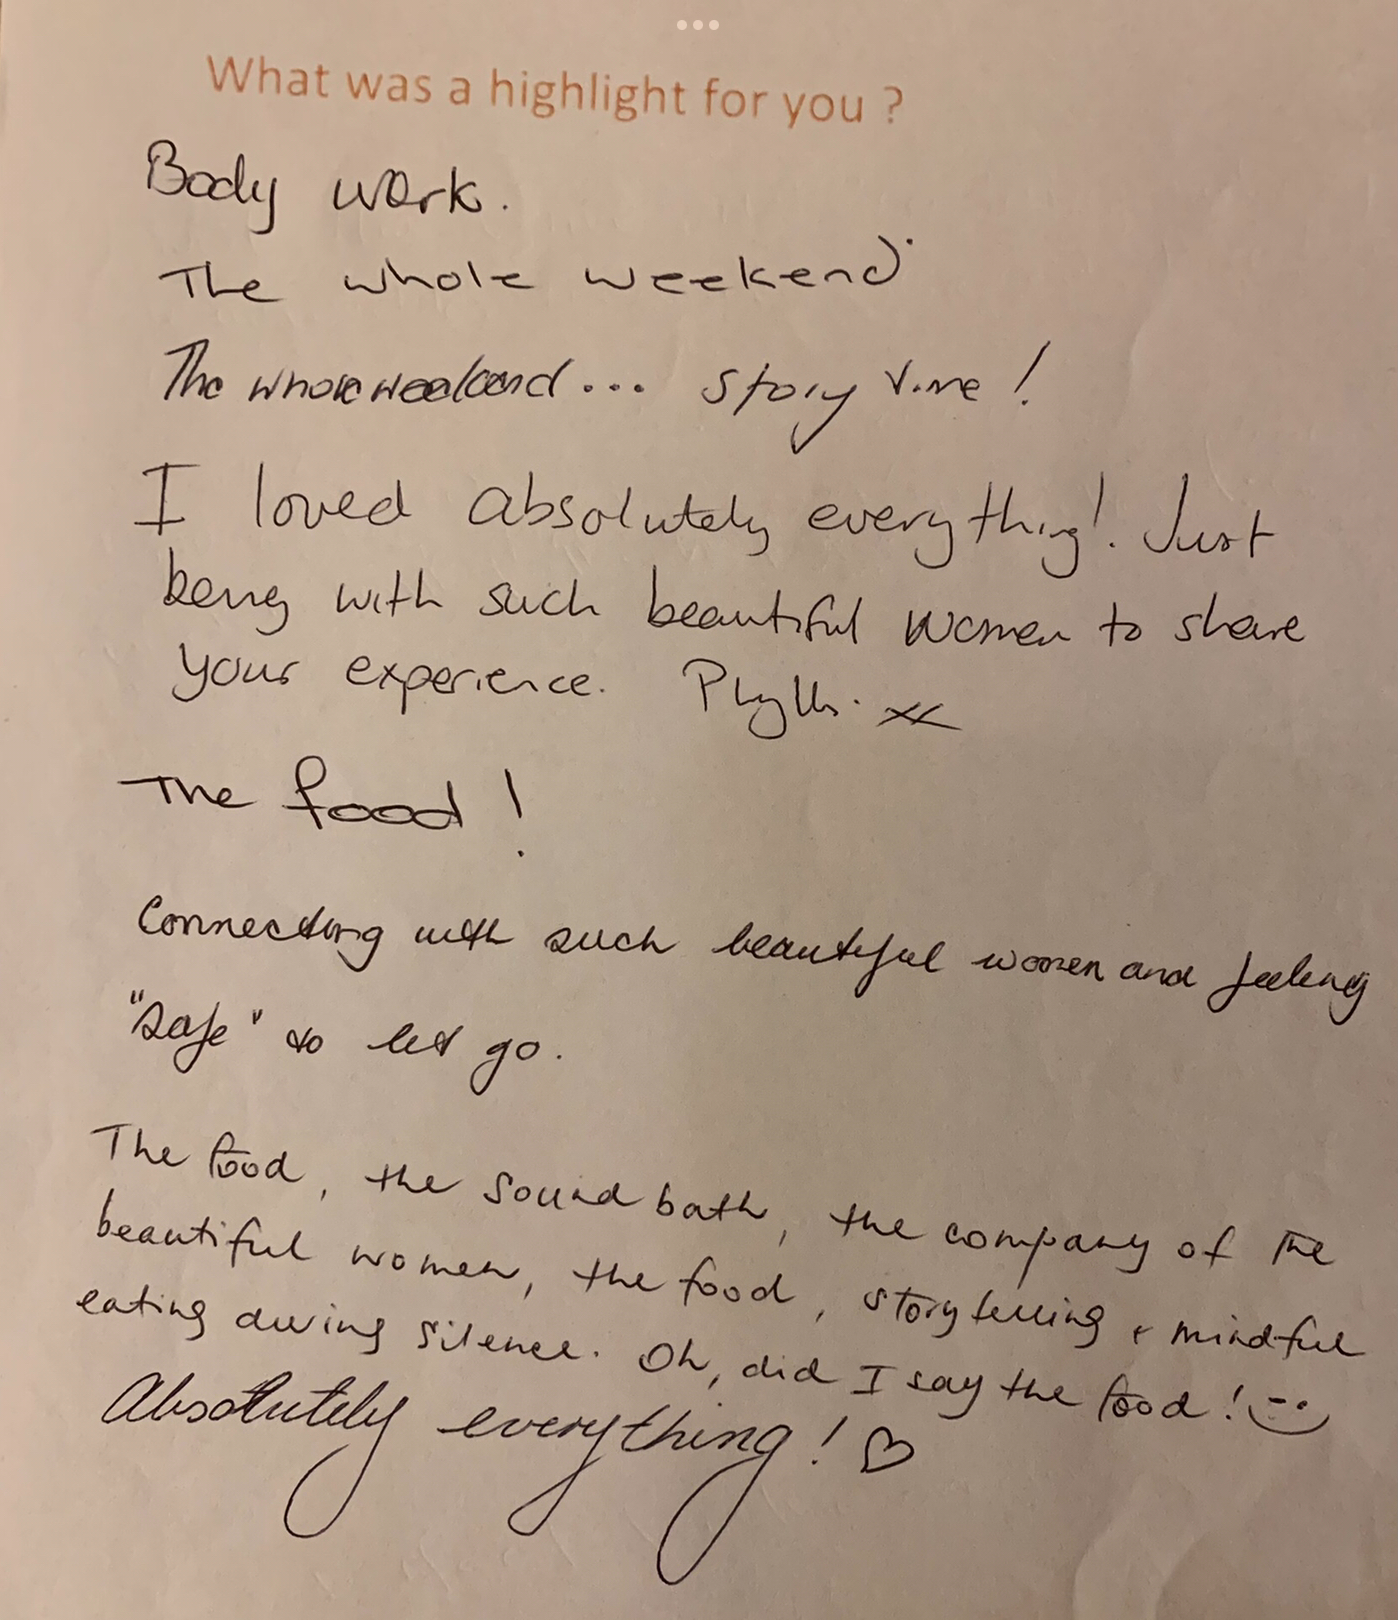 What was a highlight for you ?
Body work.
The whole weekend.
The whole weekend... story time!
I loved absolutely everything!. Just
being with such beautiful women to share
your experience. Phyllis. xx
The food!
Connecting with such beautiful women and feeling
"safe" to let go.
The food, the sound bath, the company of the
beautiful women, the food, storytelling + mindful
eating during silence. Oh, did I say the food!
Absolutely everything!